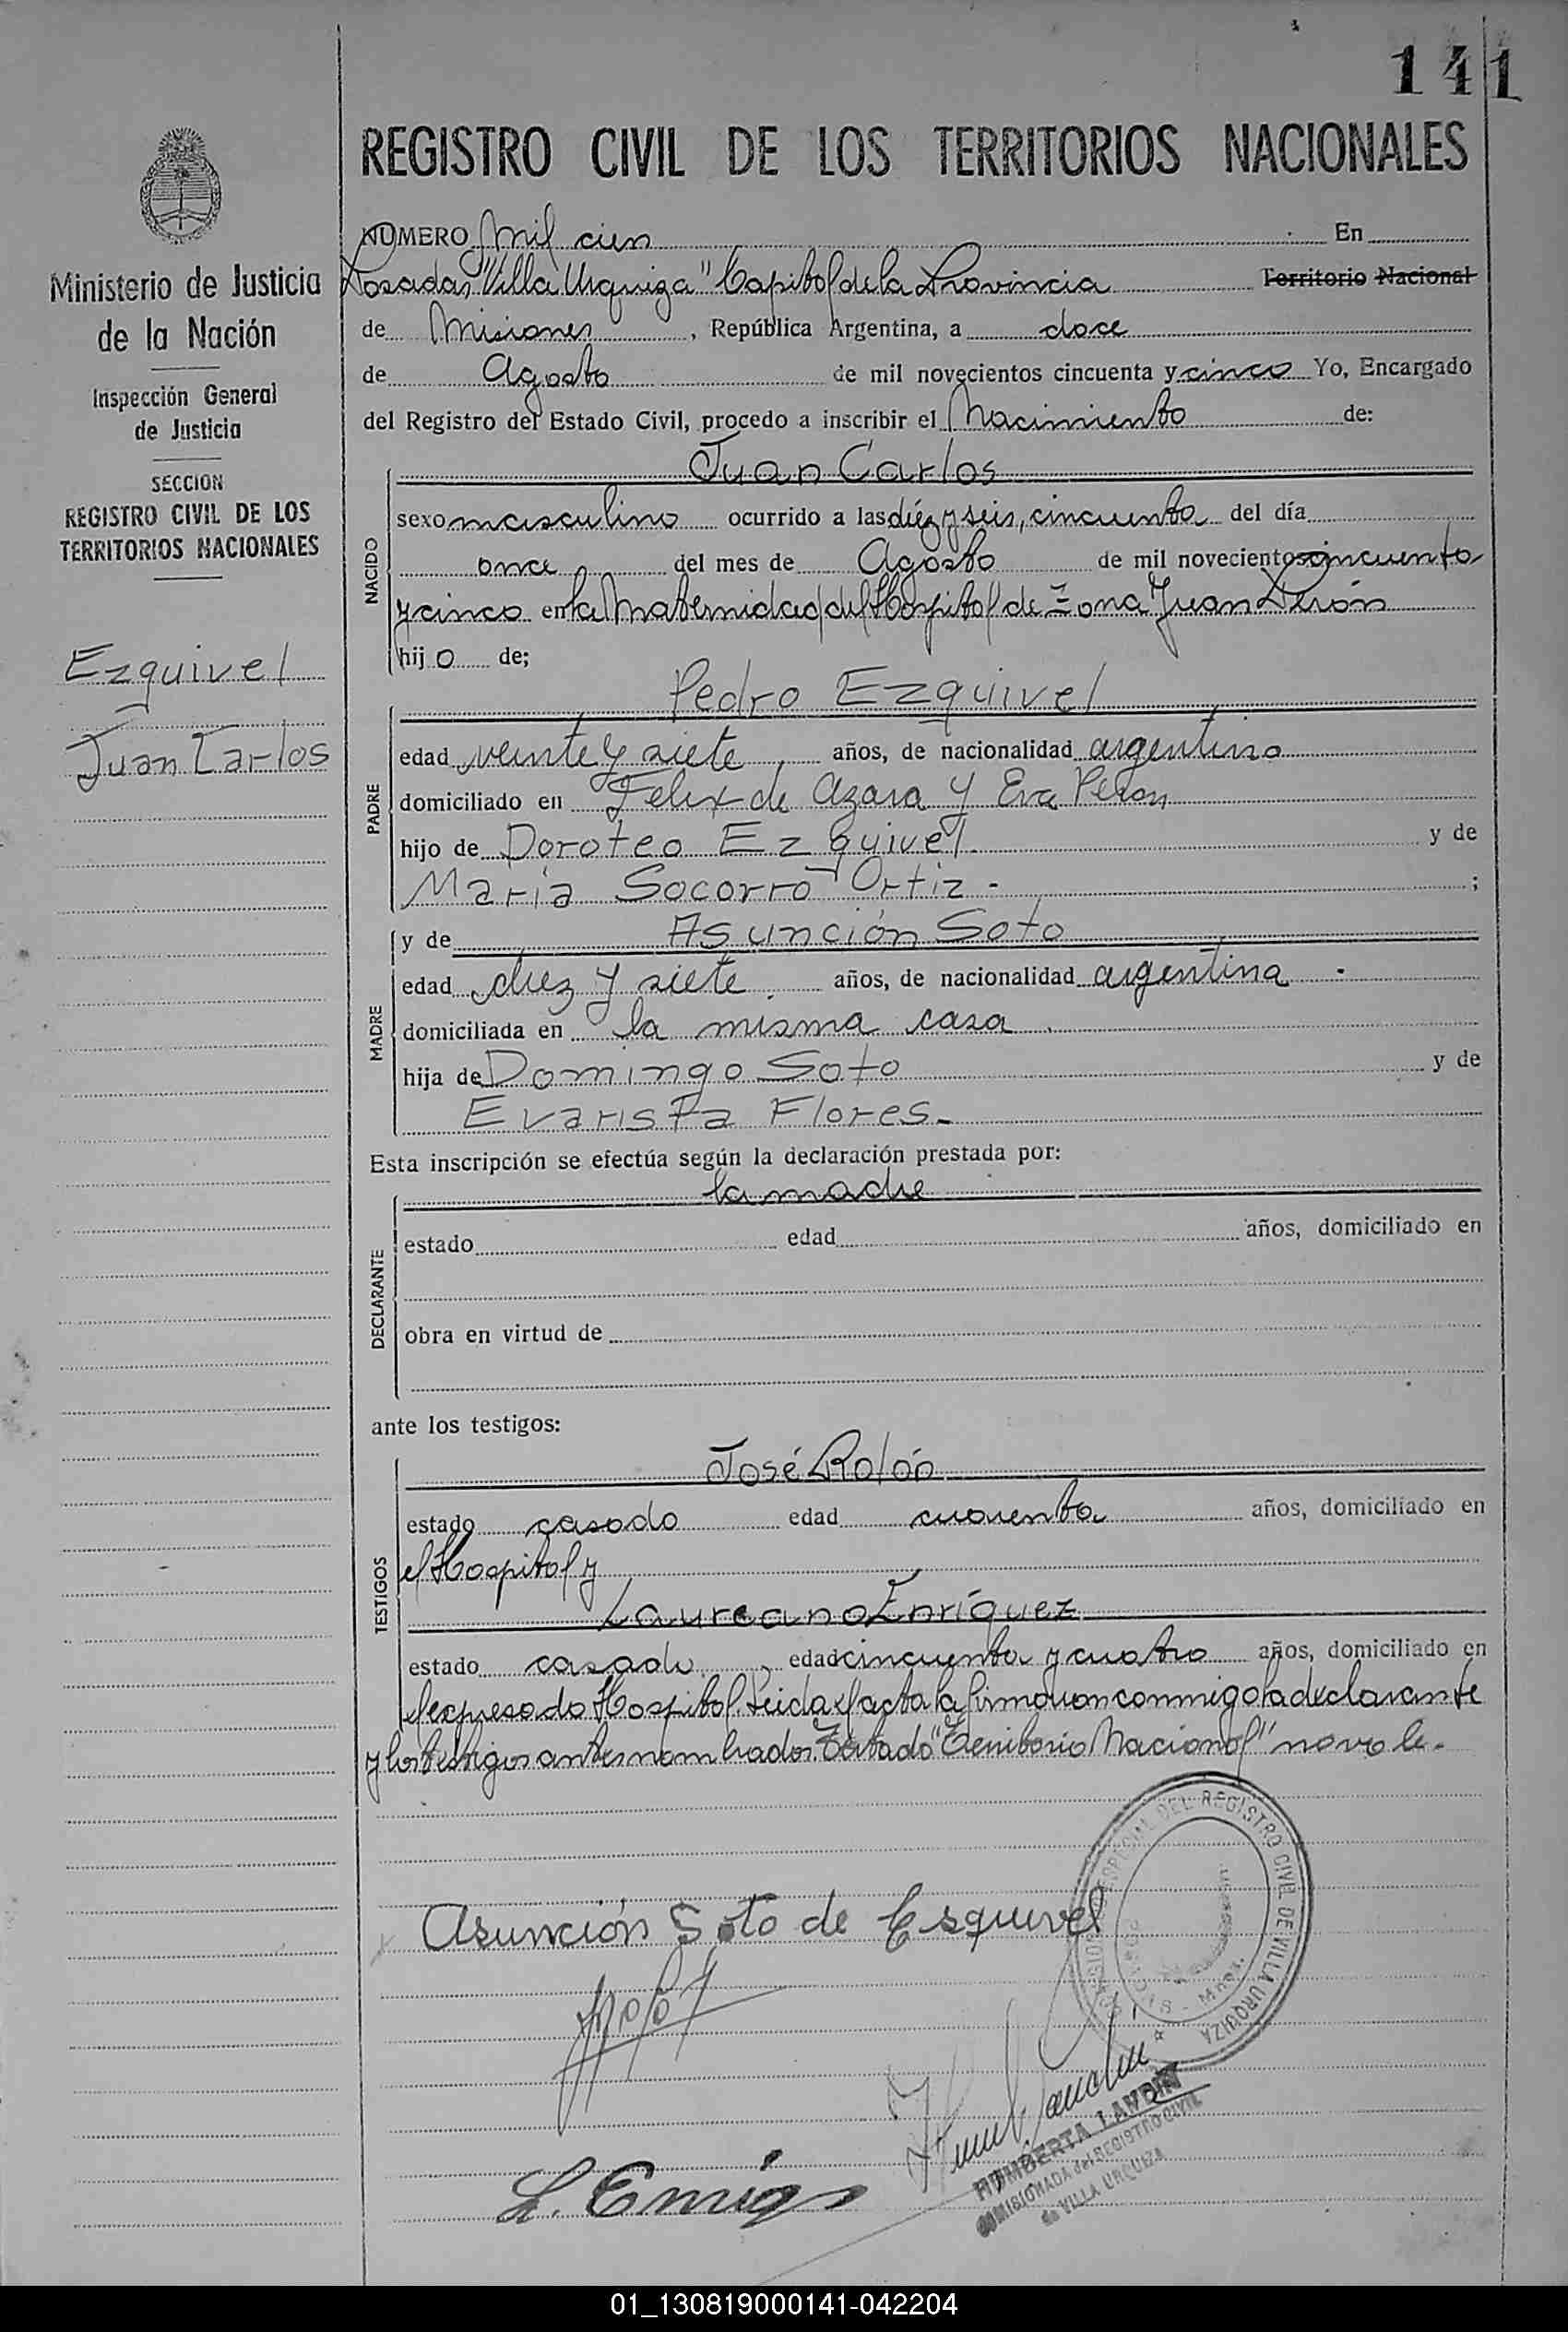 141
REGISTRO CIVIL DE LOS TERRITORIOS NACIONALES
Ministerio de Justicia
de la Nación
Inspección General
de Justicia
SECCION
REGISTRO CIVIL DE LOS
TERRITORIOS NACIONALES
Ezquivel
Juan Carlos
NUMERO mil cien En
Posadas "Villa Urquiza" Capital de la Provincia Territorio Nacional
de Misiones, República Argentina, a doce
de Agosto de mil novecientos cincuenta y cinco Yo, Encargado
del Registro del Estado Civil, procedo a inscribir el Nacimiento de:
NACIDO
Juan Carlos
sexo masculino ocurrido a las diéz y seis, cincuenta del día
once del mes de Agosto de mil novecientos cincuenta
y cinco en la Maternidad del Hospital de Zona Juan Perón
hijo de;
PADRE
Pedro Ezquivel
edad veinte y siete años, de nacionalidad argentino
domiciliado en Felix de Azara y Eva Perón
hijo de Doroteo Ezquivel y de
María Socorro Ortiz - ;
MADRE
y de Asunción Soto
edad diez y siete años, de nacionalidad argentina
domiciliada en la misma casa
hija de Domingo Soto y de
Evarista Flores.-
Esta inscripción se efectúa según la declaración prestada por:
DECLARANTE
la madre
estado edad años, domiciliado en
obra en virtud de
ante los testigos:
TESTIGOS
José Rolón
estado casado edad cuarenta años, domiciliado en
el Hospital y
Laureano Enríquez
estado casado, edad cincuenta y cuatro años, domiciliado en
el expresado Hospital. Leida el acta la firmaron conmigo la declarante
y los testigos antes nombrados. Testado "Territorio Nacional" no vale.-
Asunción Soto de Esquivel
ESPECIAL DEL REGISTRO CIVIL DE VILLA URQUIZA
POSADAS - MNES.
HUMBERTA LANDIN
COMISIONADA del REGISTRO CIVIL
de VILLA URQUIZA
01_130819000141-042204